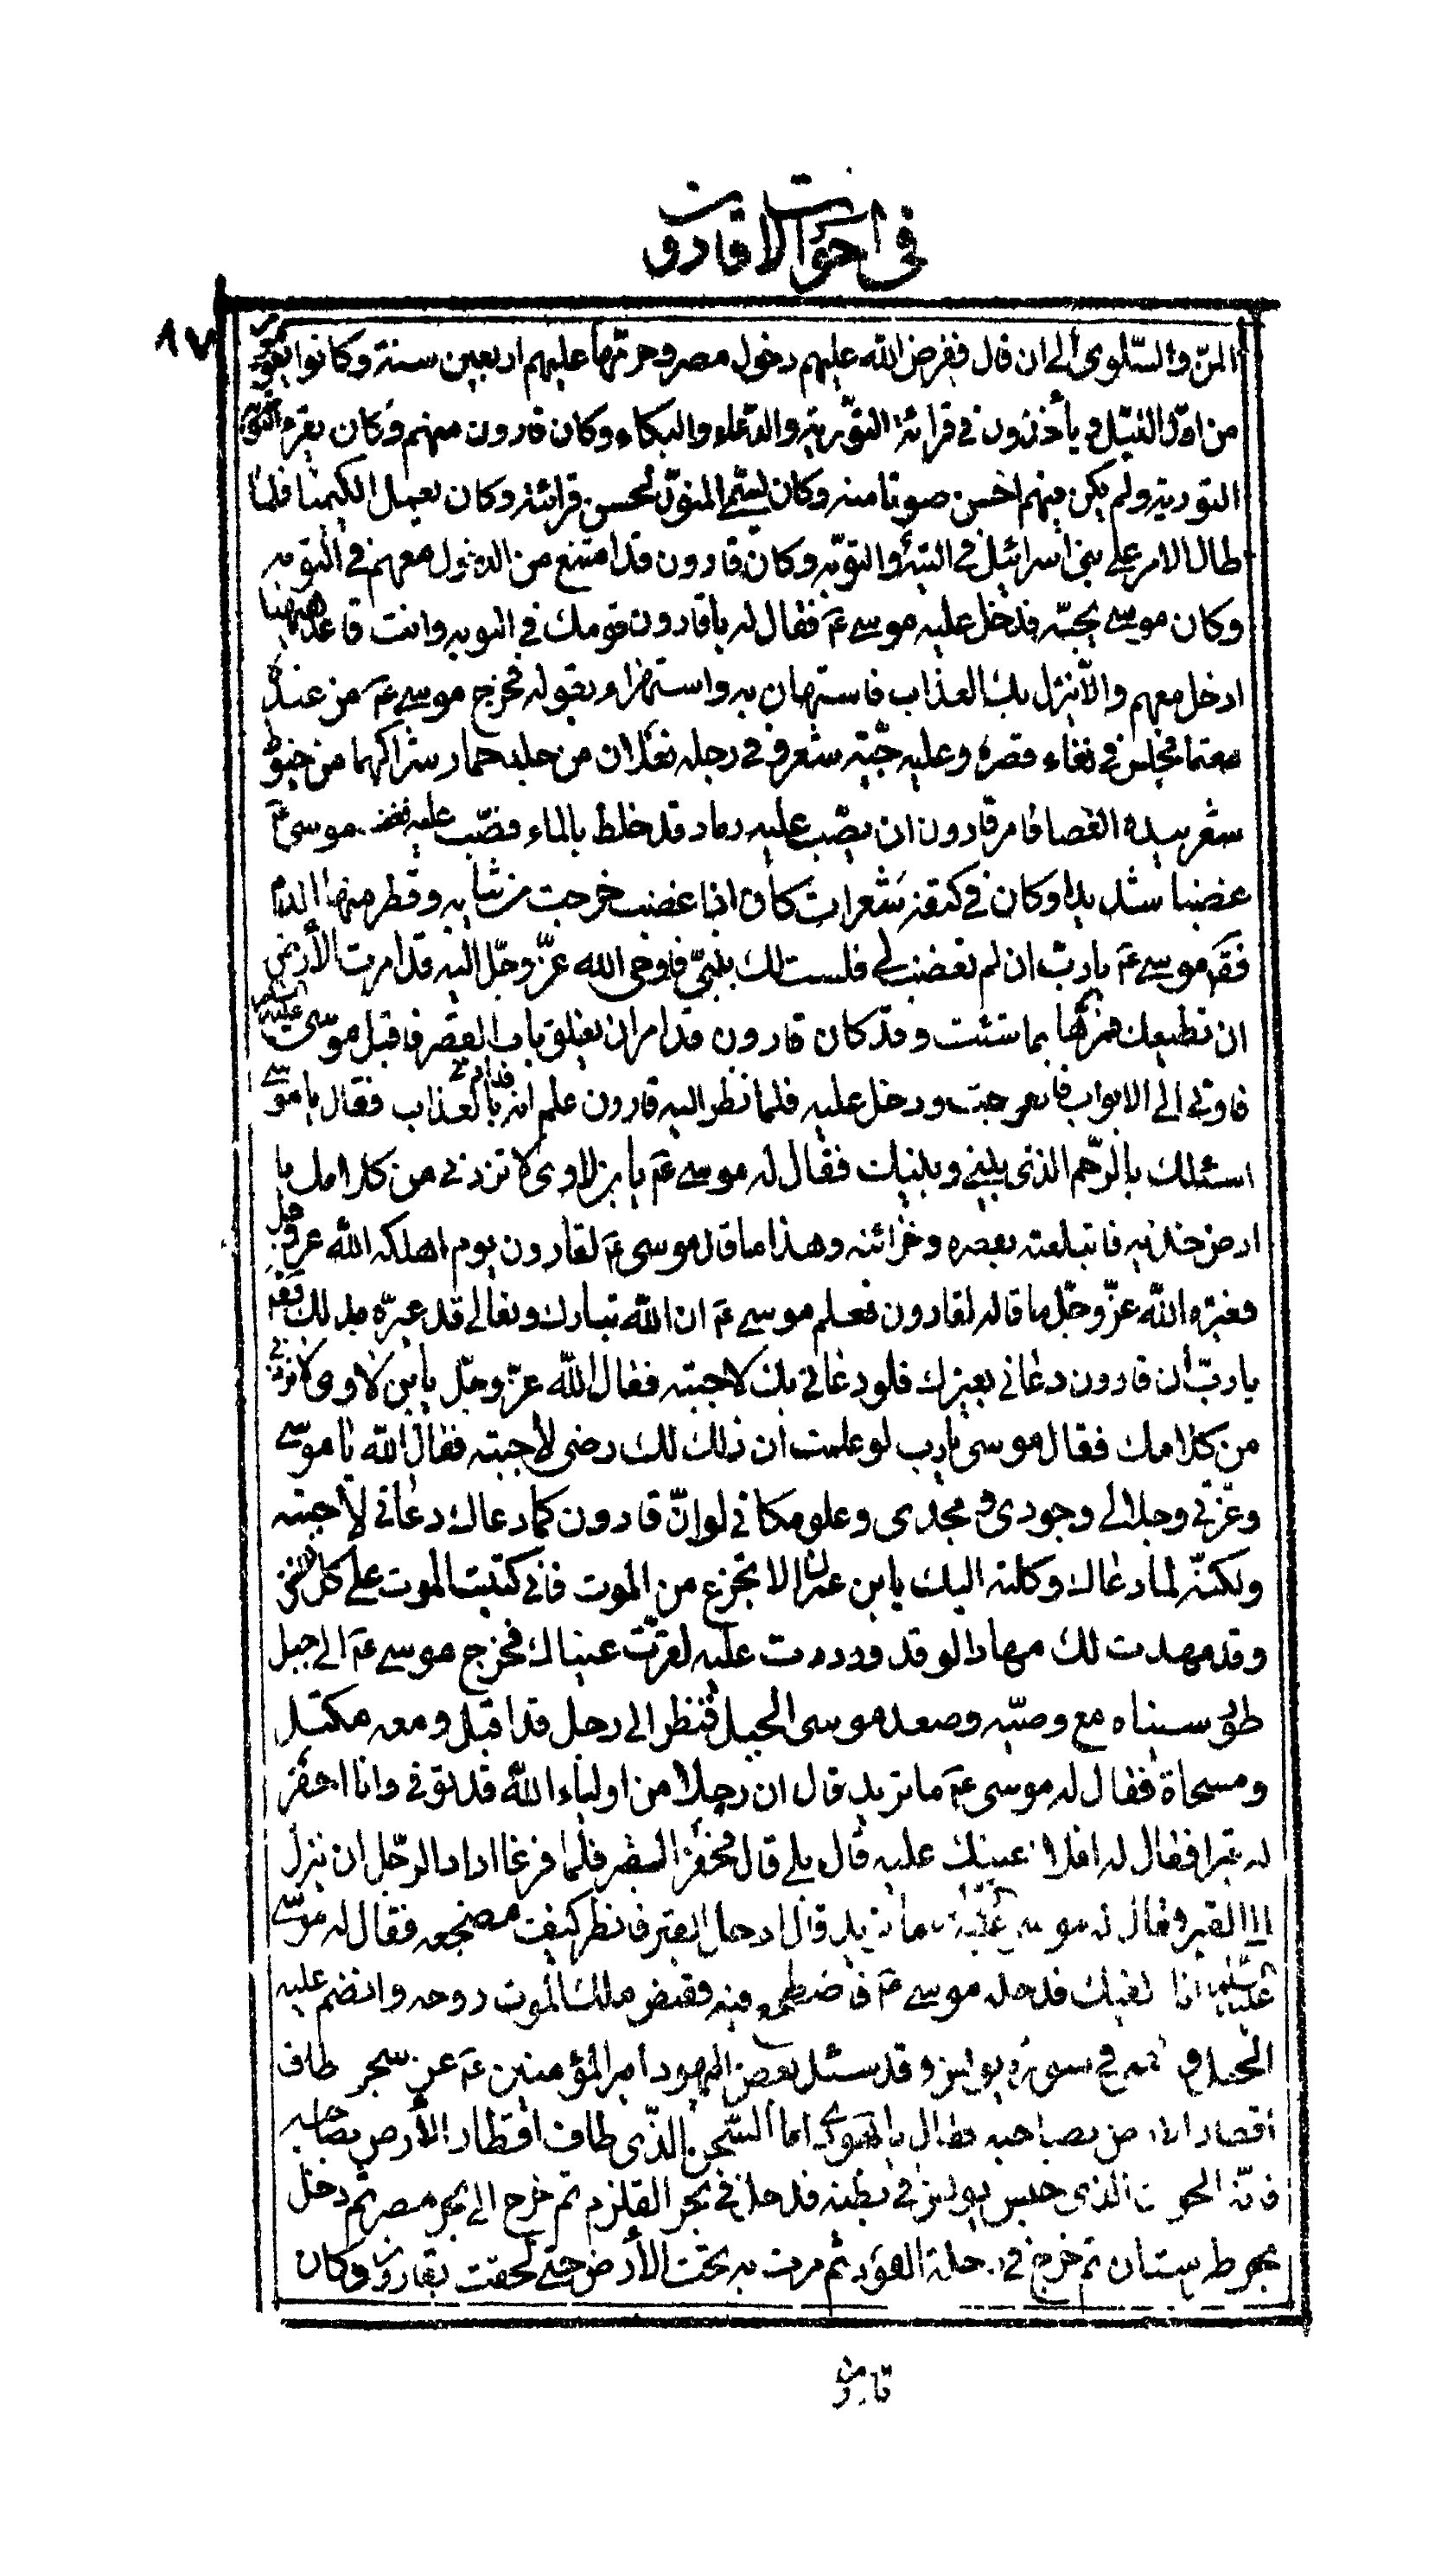 في احوالات قارون
٨٧
المنّ والسّلوى الى ان قال ففرض الله عليهم دخول مصر وحرّمها عليهم اربعين سنة وكانوا يقومون
من اوّل اللّيل و يأخذون في قرائة التّورية والدّعاء والبكاء وكان قارون منهم وكان يقرء
التورية ولم يكن فيهم احسن صوتا منه وكان يسمّى المنون لحسن قرائته وكان يعمل الكيميا فلمّا
طال الامر على بني اسرائيل في التيه والتوبة وكان قارون قد امتنع من الدخول معهم في التوبه
وكان موسى يحبّه فدخل عليه موسى ع فقال له يا قارون قومك في التوبه وانت قاعد ههنا
ادخل معهم والّا ينزل بك العذاب فاستهان به واستهزاء بقوله فخرج موسى ع من عنده
مغتما فجلس في فناء قصره وعليه جبّة شعر وفي رجله نعلان من جلد حمار شراكهما من خيوط
شعر بيده العصا فامر قارون ان يصّب عليه رماد قد خلط بالماء فصّب عليه فغضب موسى ع
غضبا شديدا وكان في كتفه شعرات كان اذا غضب خرجت من ثيابه وقطر منها الدم
فقال موسى ع يا ربّ ان لم تغضب لي فلست لك بنبيّ فاوحى الله عزّ وجلّ اليه قد امرت الأرض
ان تطيعك فمرها بما شئت وقد كان قارون قد امر ان يغلق باب القصر فاقبل موسى عليه السلام
فاومى الى الابواب فانفرجت ودخل عليه فلما نظر اليه قارون علم انه قد اتى بالعذاب فقال يا موسى
اسئلك بالرّحم الذى بيني وبينك فقال له موسى ع يا بن لاوى لا تزدني من كلامك يا
ارض خذيه فابتلعته بقصره وخزائنه وهذا ما قال موسى ع لقارون يوم اهلكه الله عز وجل
فعيّره الله عزّ وجلّ بما قاله لقارون فعلم موسى ع ان الله تبارك وتعالى قد عيّره بذلك فقال
يا ربّ ان قارون دعاني بغيرك فلو دعاني بك لاجبته فقال الله عزّ وجلّ يا بن لاوى لا تزدني
من كلامك فقال موسى يا رب لو علمت ان ذلك لك رضى لأجبته فقال الله يا موسى
وعزّتي وجلالي وجودى و مجدى وعلو مكاني لو انّ قارون كما دعاك دعاني لأجبته
ولكنّه لما دعاك وكلته اليك يا بن عمران لا تجزع من الموت فاني كتبت الموت على كل نفس
وقد مهدت لك مهادا لو قد وردت عليه لقرّت عيناك فخرج موسى ع الى جبل
طور سيناء مع وصيّه وصعد موسى الجبل فنظر الى رجل قد اقبل ومعه مكتل
ومسحاة فقال له موسى ع ما تريد قال ان رجلا من اولياء الله قد توفى وانا احفر
له قبرا فقال له افلا اعينك عليه قال بلى قال فحفرا القبر فلمّا فرغا اراد الرّجل ان ينزل
الى القبر فقال له موسى عليه ما تريد قال ادخل القبر فانظر كيف مضجعه فقال له موسى
عليه السلام انا اكفيك فدخله موسى ع فاضطجع فيه فقبض ملك الموت روحه وانضم عليه
الجبل و فيه في سورة يونس وقد سئل بعض اليهود امير المؤمنين ع عن سجن طاف
اقطار الارض بصاحبه فقال يا يهودى اما السّجن الذّى طاف اقطار الأرض بصاحبه
فانّه الحوت الذى حبس يونس في بطنه فدخل في بحر القلزم ثم خرج الى بحر مصر ثم دخل
بحر طبرستان ثم خرج في دجلة العور ثم مرت به تحت الأرض حتى لحقت بقارون وكان
قارون